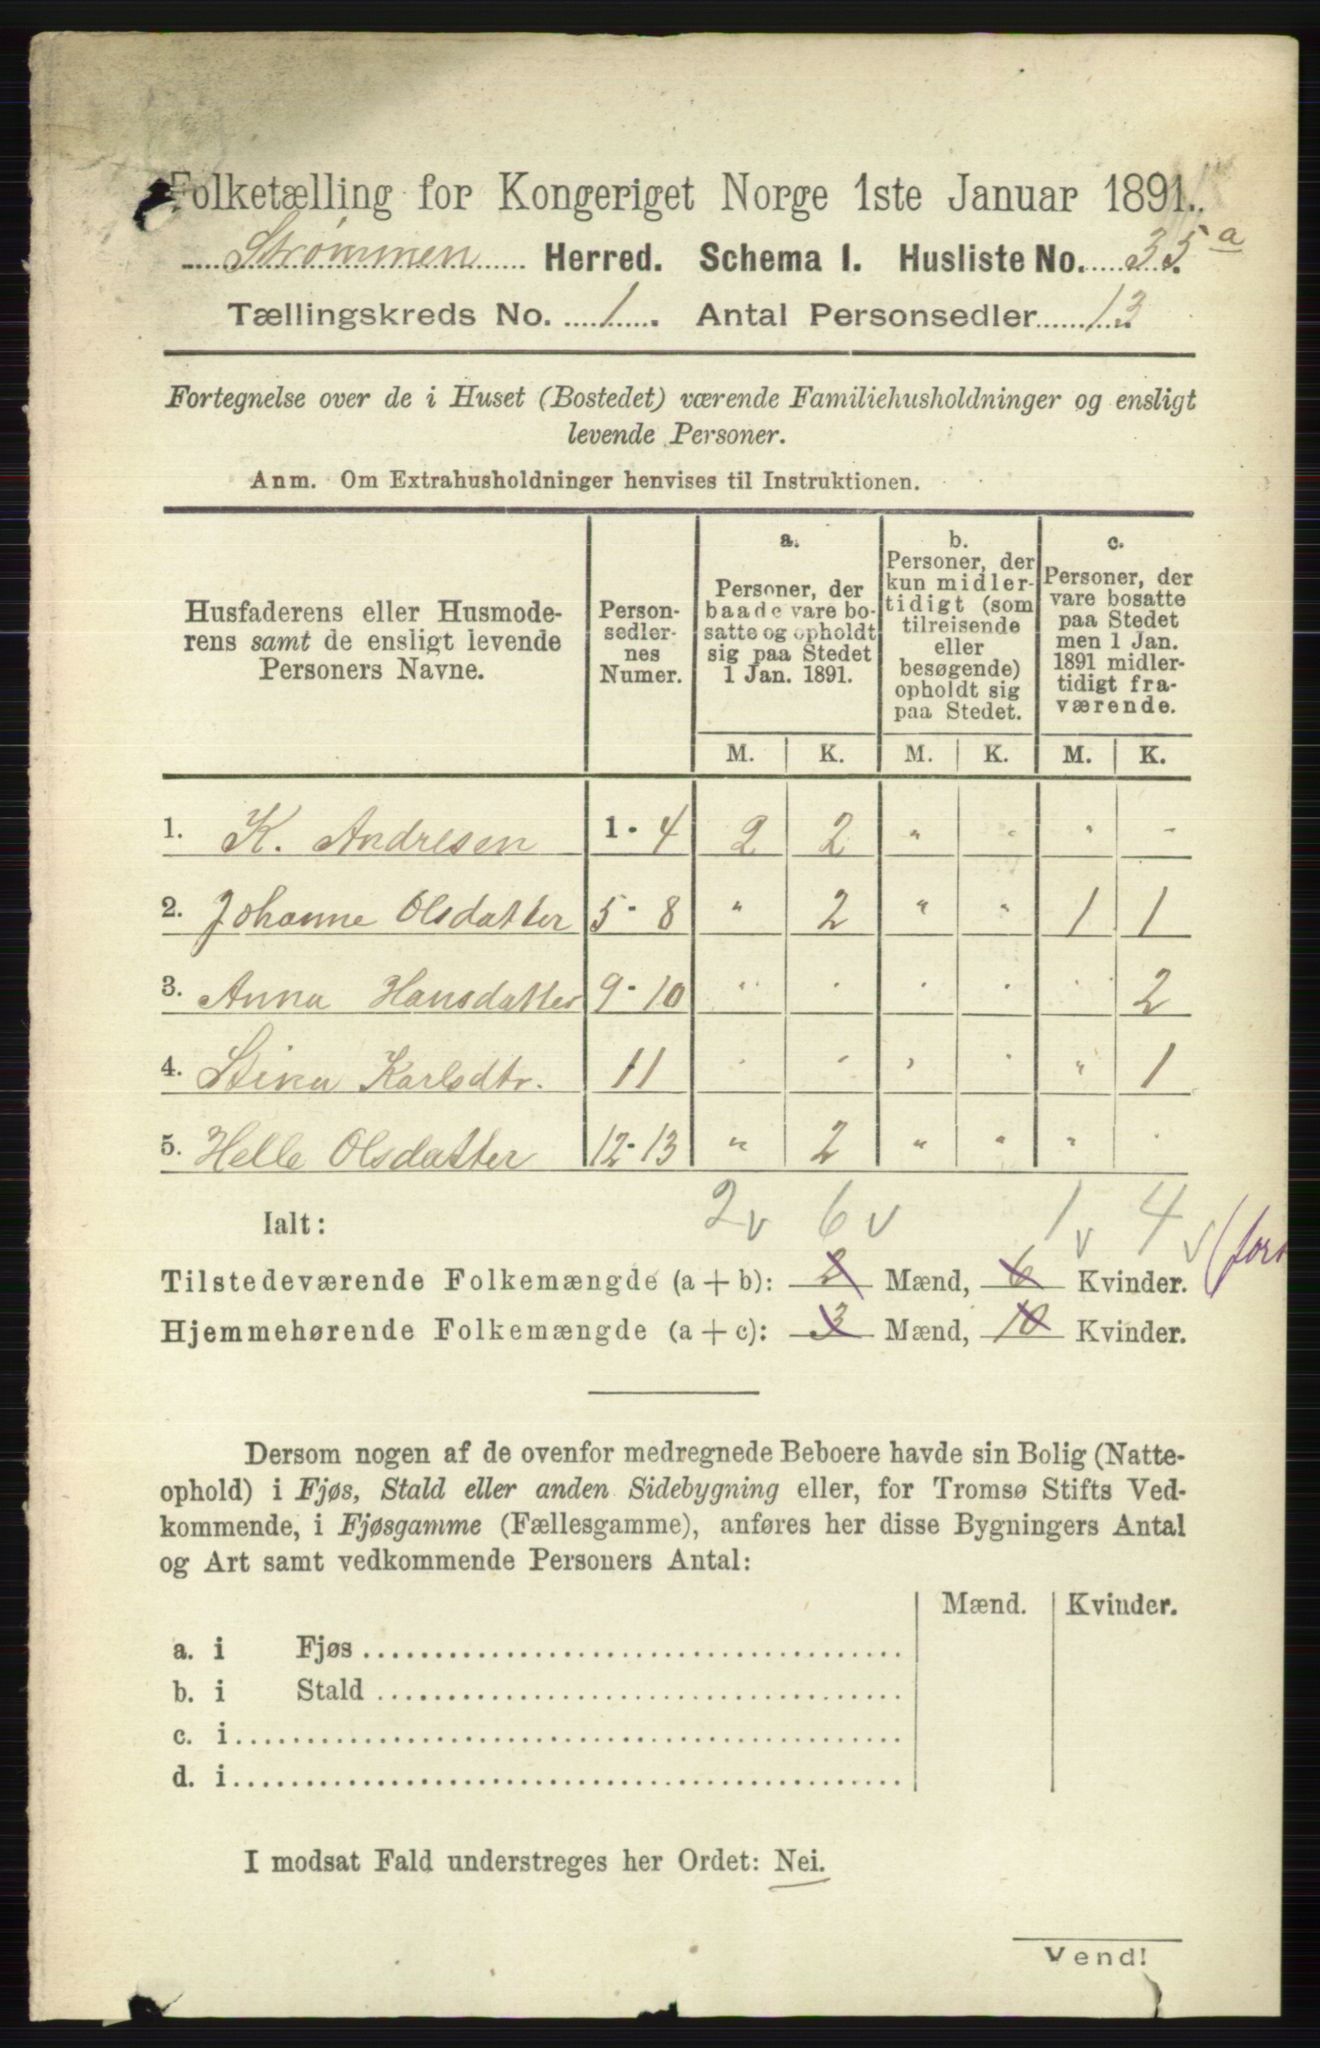 Folketælling for Kongeriget Norge 1ste Januar 1891.
Strømmen Herred. Schema I. Husliste No. 35 a
Tællingskreds No. 1. Antal Personsedler 13
Fortegnelse over de i Huset (Bostedet) værende Familiehusholdninger og ensligt
levende Personer.
Anm. Om Extrahusholdninger henvises til Instruktionen.
Husfaderens eller Husmode-
rens samt de ensligt levende
Personers Navne.
Person-
sedler-
nes
Numer.
a.
Personer, der
baade vare bo-
satte og opholdt
sig paa Stedet
1 Jan. 1891.
b.
Personer, der
kun midler-
tidigt (som
tilreisende
eller
besøgende)
opholdt sig
paa Stedet.
c.
Personer, der
vare bosatte
paa Stedet
men 1 Jan.
1891 midler-
tidigt fra-
værende.
M. K. M. K. M. K.
1. K. Andresen 1 - 4 2 2 " " " "
2. Johanne Olsdatter 5 - 8 " 2 " " 1 1
3. Anna Hansdatter 9 - 10 " " " " " 2
4. Stina Karlsdtr. 11 " " " " " 1
5. Helle Olsdatter 12 - 13 " 2 " " " "
Ialt: 2 v 6 v 1 v 4 v
(fort
Tilstedeværende Folkemængde (a + b): 2 Mænd, 6 Kvinder.
Hjemmehørende Folkemængde (a + c): 3 Mænd, 10 Kvinder.
Dersom nogen af de ovenfor medregnede Beboere havde sin Bolig (Natte-
ophold) i Fjøs, Stald eller anden Sidebygning eller, for Tromsø Stifts Ved-
kommende, i Fjøsgamme (Fællesgamme), anføres her disse Bygningers Antal
og Art samt vedkommende Personers Antal:
Mænd. Kvinder.
a. i Fjøs
b. i Stald
c. i
d. i
I modsat Fald understreges her Ordet: Nei.
Vend!